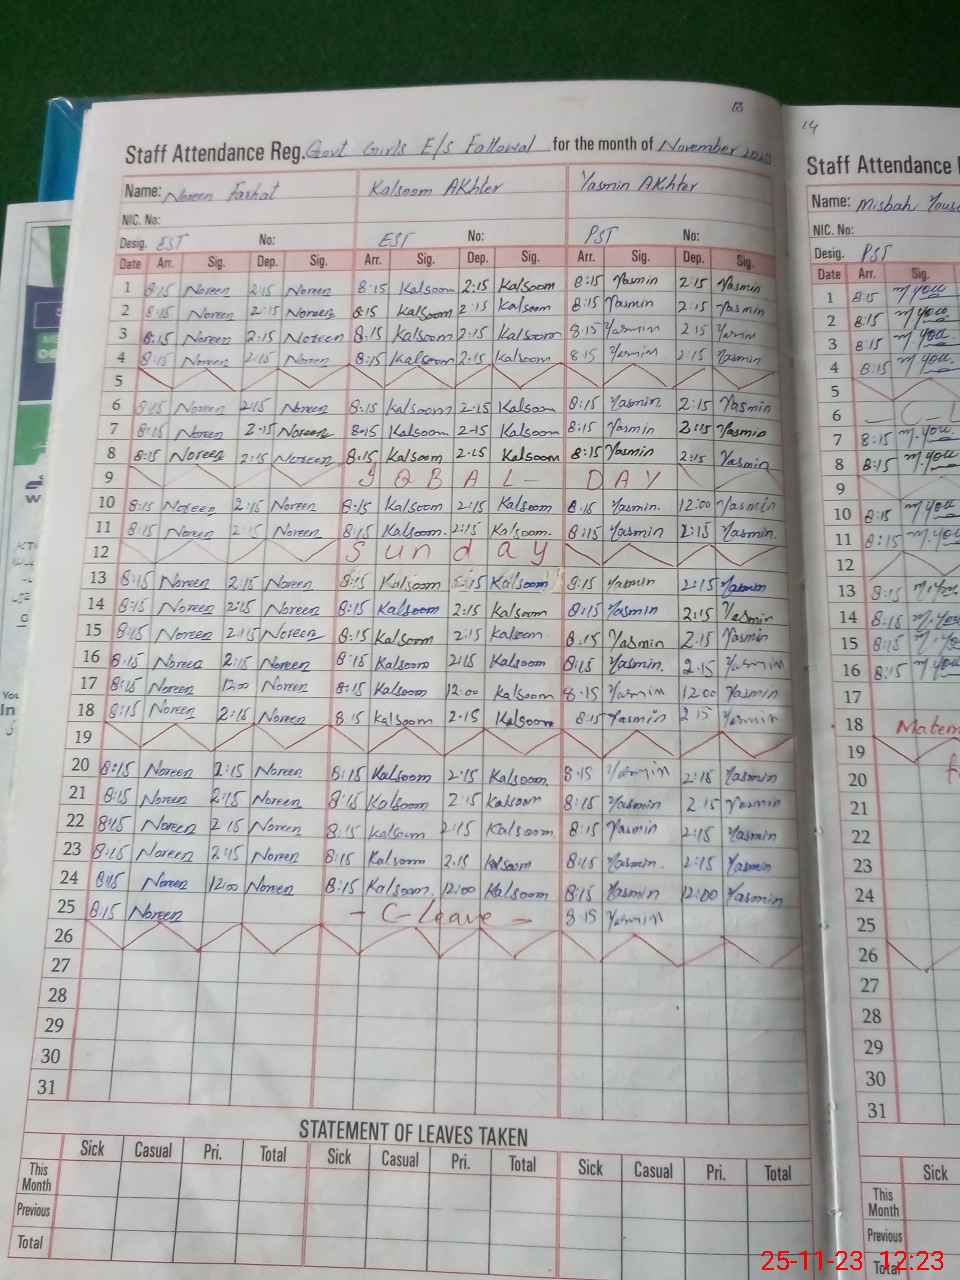 13
Staff Attendance Reg. Govt Girls E/s Fallowal for the month of November
Name: Noreen Farhat Kalsoom AKhter Yasmin AKhter
NIC. No:
Desig. EST No: EST No: PST No:
Date Arr. Sig. Dep. Sig. Arr. Sig. Dep. Sig. Arr. Sig. Dep. Sig.
1 8:15 Noreen 2:15 Noreen 8:15 Kalsoom 2:15 Kalsoom 8:15 Yasmin 2:15 Yasmin
2 8:15 Noreen 2:15 Noreen 8:15 Kalsoom 2:15 Kalsoom 8:15 Yasmin 2:15 Yasmin
3 8:15 Noreen 2:15 Noreen 8:15 Kalsoom 2:15 Kalsoom 8:15 Yasmin 2:15 Yasmin
4 8:15 Noreen 2:15 Noreen 8:15 Kalsoom 2:15 Kalsoom 8:15 Yasmin 2:15 Yasmin
5
6 8:15 Noreen 2:15 Noreen 8:15 Kalsoom 2:15 Kalsoom 8:15 Yasmin 2:15 Yasmin
7 8:15 Noreen 2:15 Noreen 8:15 Kalsoom 2:15 Kalsoom 8:15 Yasmin 2:15 Yasmin
8 8:15 Noreen 2:15 Noreen 8:15 Kalsoom 2:15 Kalsoom 8:15 Yasmin 2:15 Yasmin
9 IQBAL DAY
10 8:15 Noreen 2:15 Noreen 8:15 Kalsoom 2:15 Kalsoom 8:15 Yasmin 12:00 Yasmin
11 8:15 Noreen 2:15 Noreen 8:15 Kalsoom 2:15 Kalsoom 8:15 Yasmin 2:15 Yasmin
12 Sunday
13 8:15 Noreen 2:15 Noreen 8:15 Kalsoom 2:15 Kalsoom 8:15 Yasmin 2:15 Yasmin
14 8:15 Noreen 2:15 Noreen 8:15 Kalsoom 2:15 Kalsoom 8:15 Yasmin 2:15 Yasmin
15 8:15 Noreen 2:15 Noreen 8:15 Kalsoom 2:15 Kalsoom 8:15 Yasmin 2:15 Yasmin
16 8:15 Noreen 2:15 Noreen 8:15 Kalsoom 2:15 Kalsoom 8:15 Yasmin 2:15 Yasmin
17 8:15 Noreen 12:00 Noreen 8:15 Kalsoom 12:00 Kalsoom 8:15 Yasmin 12:00 Yasmin
18 8:15 Noreen 2:15 Noreen 8:15 Kalsoom 2:15 Kalsoom 8:15 Yasmin 2:15 Yasmin
19
20 8:15 Noreen 2:15 Noreen 8:15 Kalsoom 2:15 Kalsoom 8:15 Yasmin 2:15 Yasmin
21 8:15 Noreen 2:15 Noreen 8:15 Kalsoom 2:15 Kalsoom 8:15 Yasmin 2:15 Yasmin
22 8:15 Noreen 2:15 Noreen 8:15 Kalsoom 2:15 Kalsoom 8:15 Yasmin 2:15 Yasmin
23 8:15 Noreen 2:15 Noreen 8:15 Kalsoom 2:15 Kalsoom 8:15 Yasmin 2:15 Yasmin
24 8:15 Noreen 12:00 Noreen 8:15 Kalsoom 12:00 Kalsoom 8:15 Yasmin 12:00 Yasmin
25 8:15 Noreen - C-leave - 8:15 Yasmin
26
27
28
29
30
31
STATEMENT OF LEAVES TAKEN
Sick Casual Pri. Total Sick Casual Pri. Total Sick Casual Pri. Total
This Month
Previous
Total
14
Staff Attendance
Name: Misbah
NIC. No:
Desig. PST
Date Arr. Sig.
1 8:15 M.You
2 8:15 M.You
3 8:15 M.You
4 8:15 M.You
5
6
7 8:15 M.You
8 8:15 M.You
9
10 8:15 M.You
11 8:15 M.You
12
13 8:15 M.You
14 8:15 M.You
15 8:15 M.You
16 8:15 M.You
17
18
19
20
21
22
23
24
25
26
27
28
29
30
31
Sick
This Month
Previous
Total
25-11-23 12:23